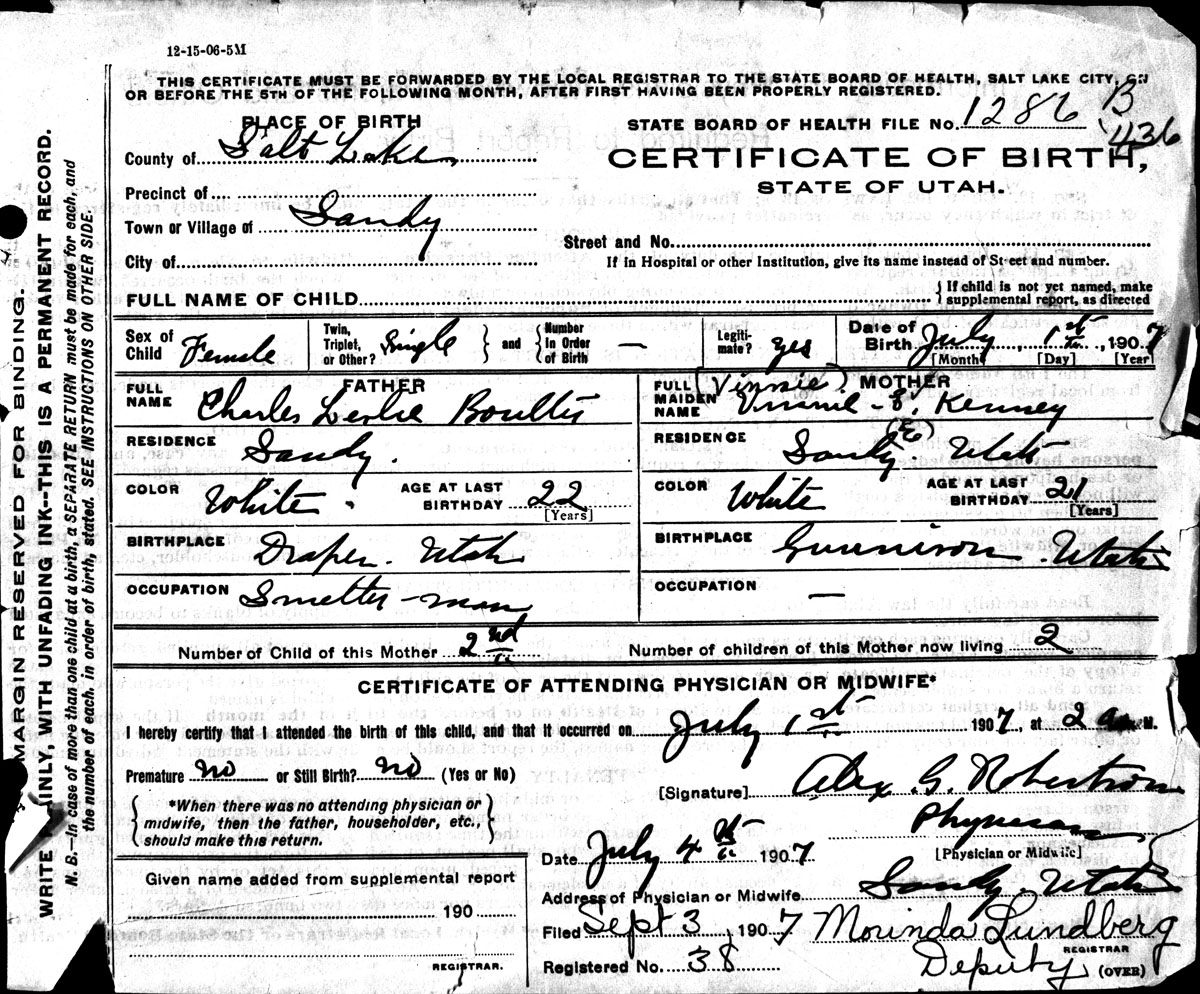 12-15-06-5M
THIS CERTIFICATE MUST BE FORWARDED BY THE LOCAL REGISTRAR TO THE STATE BOARD OF HEALTH, SALT LAKE CITY, ON
OR BEFORE THE 5TH OF THE FOLLOWING MONTH, AFTER FIRST HAVING BEEN PROPERLY REGISTERED.
PLACE OF BIRTH
STATE BOARD OF HEALTH FILE No. 1286 B
436
County of Salt Lake
CERTIFICATE OF BIRTH,
STATE OF UTAH.
Precinct of
Town or Village of Sandy
Street and No.
City of
If in Hospital or other Institution, give its name instead of Street and number.
FULL NAME OF CHILD
{ If child is not yet named, make
supplemental report, as directed
Sex of Child Female
Twin, Triplet, or Other? Single } and { Number In Order of Birth —
Legitimate? yes
Date of Birth July 1st, 1907
[Month] [Day] [Year]
FATHER
FULL NAME Charles Leslie Boulter
RESIDENCE Sandy.
COLOR White. AGE AT LAST BIRTHDAY 22
[Years]
BIRTHPLACE Draper. Utah
OCCUPATION Smelter-man
MOTHER
(Vinnie)
FULL MAIDEN NAME Vinnie E. Kenney
(E)
RESIDENCE Sandy. Utah
COLOR White AGE AT LAST BIRTHDAY 21
[Years]
BIRTHPLACE Gunnison. Utah
OCCUPATION —
Number of Child of this Mother 2nd
Number of children of this Mother now living 2
CERTIFICATE OF ATTENDING PHYSICIAN OR MIDWIFE*
I hereby certify that I attended the birth of this child, and that it occurred on July 1st 1907, at 2 a M.
Premature no or Still Birth? no (Yes or No)
[Signature] Alex. G. Robertson
{ *When there was no attending physician or
midwife, then the father, householder, etc.,
should make this return. }
Physician
[Physician or Midwife]
Date July 4th 1907
Given name added from supplemental report
190
REGISTRAR.
Address of Physician or Midwife Sandy. Utah
Filed Sept 3, 1907 Morinda Lundberg
REGISTRAR
Registered No. 38 Deputy (OVER)
MARGIN RESERVED FOR BINDING.
WRITE PLAINLY, WITH UNFADING INK--THIS IS A PERMANENT RECORD.
N. B.—In case of more than one child at a birth, a SEPARATE RETURN must be made for each, and
the number of each, in order of birth, stated. SEE INSTRUCTIONS ON OTHER SIDE.